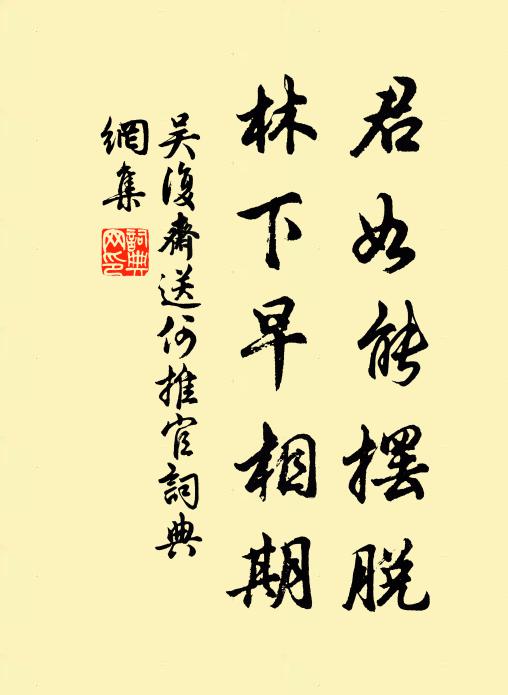 君如能擺脫
林下早相期
吳復齋送何推官詞典
網集
詞典
网印